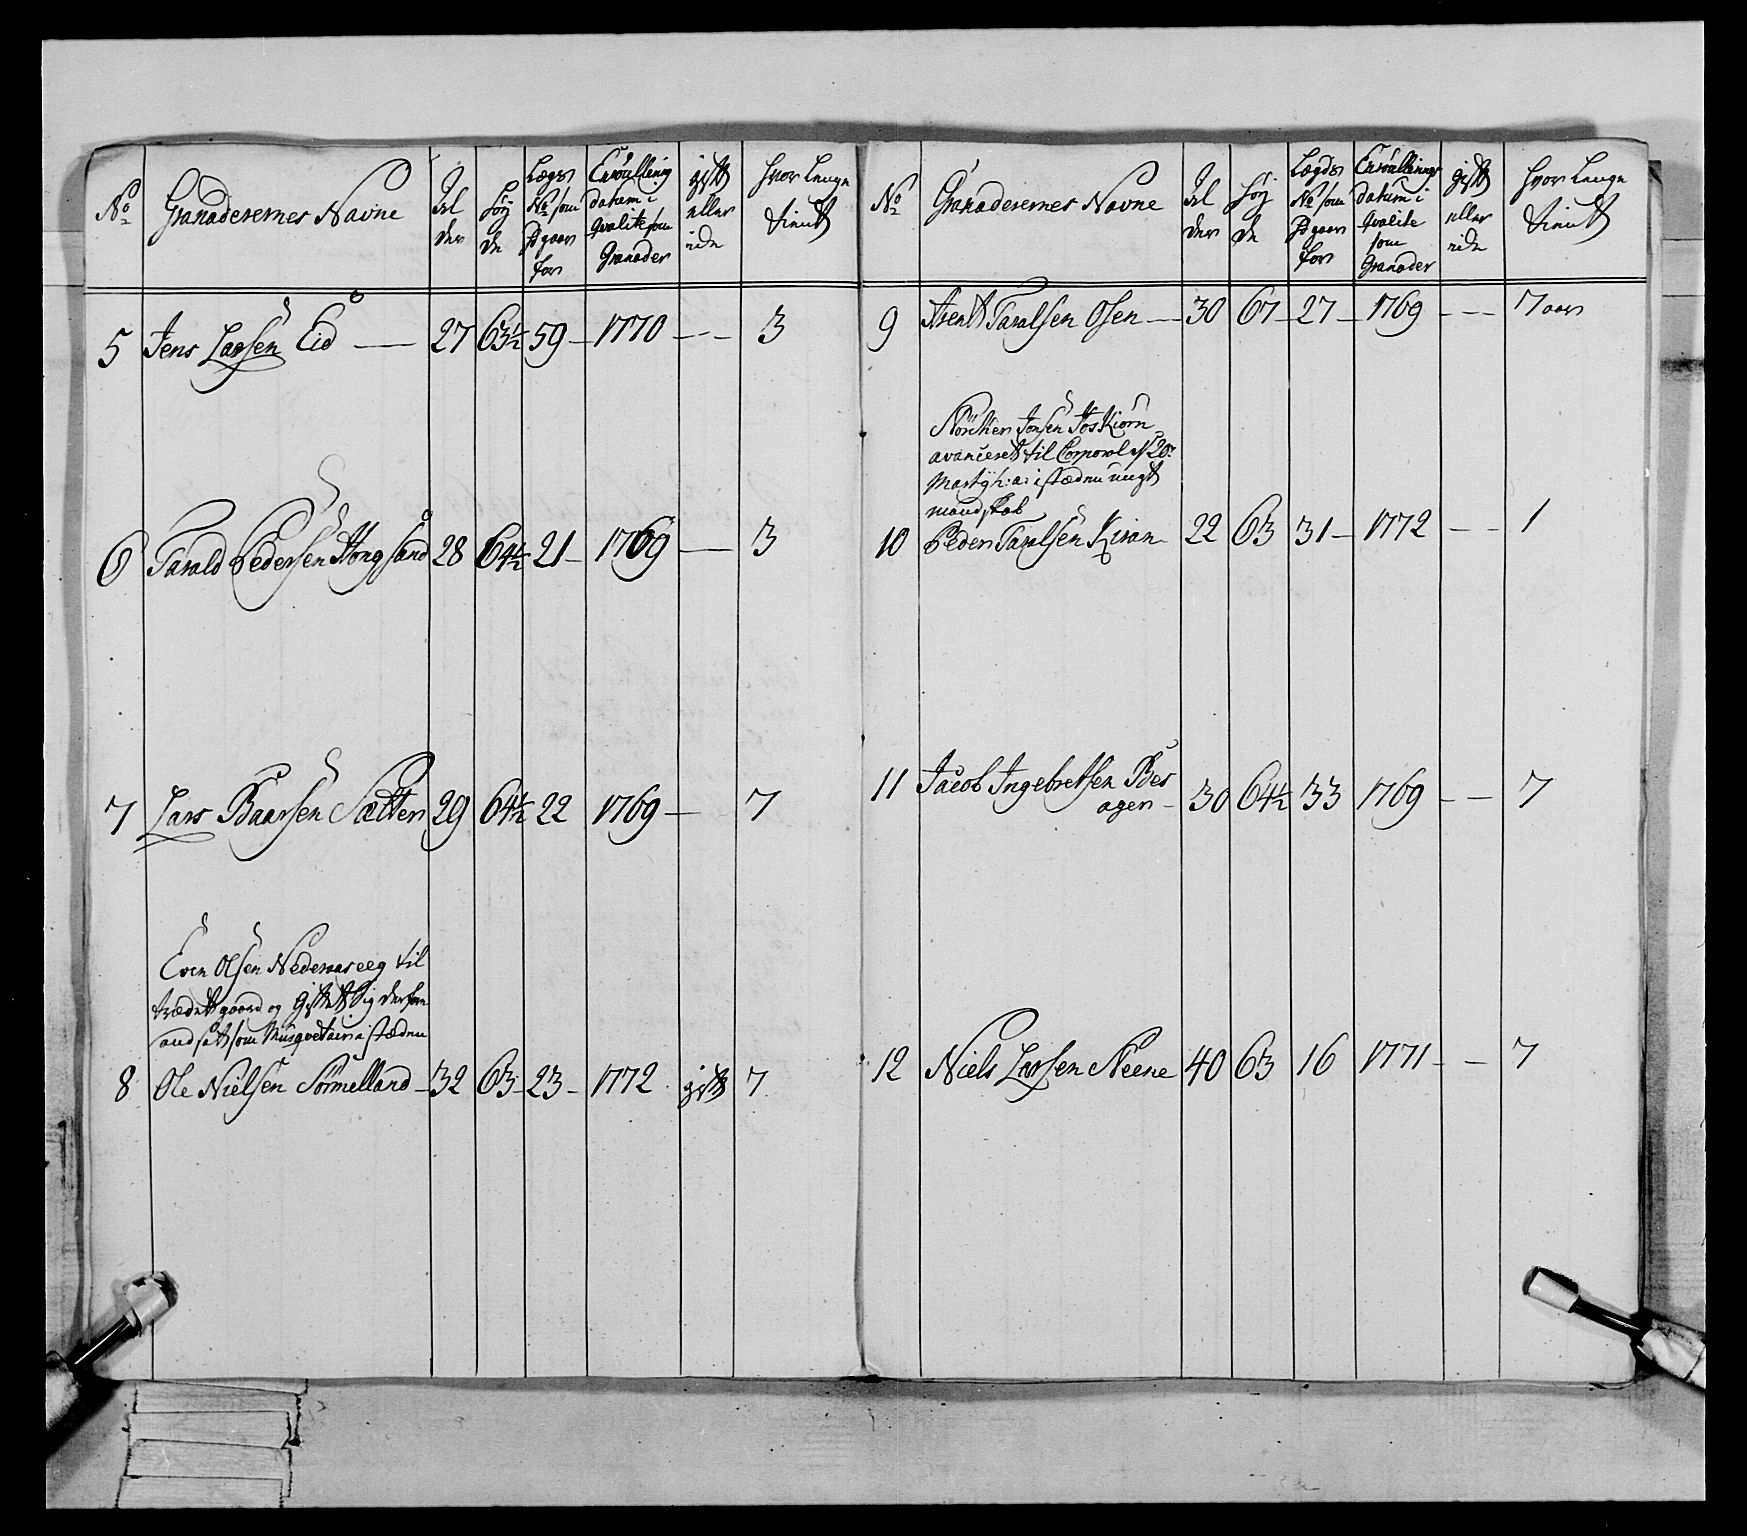 No Granaderernes Navne Al der Höy de Lægds No som ... gaar for Enroullerings datum i Qvalite som Granader gift eller eide hvor Lenge tient
5 Jens Larsen Eid — 27 63½ 59 — 1770 — — 3
6 Tarald Pedersen Hougsand 28 64½ 21 — 1769 — 3
7 Lars Baarsen Sætter 29 64½ 22 1769 — 7
Even Olsen Nederaaseeg til
trædt gaard og Giftet Sig derfor
andsatt som Musqveteur i stæden
8 Ole Nielsen Sörmelland — 32 63 — 23 — 1772 gift 7
No Granaderernes Navne Al der Höy de Lægds No som ... gaar for Enroullerings datum i Qvalite som Granader gift eller eide hvor Lenge tient
9 Arent Taralsen Osen — 30 67 — 27 — 1769 — — 7 aar
Jonsen
avanceret til Corporal d 20de
Marty h: a: i stæden ungt
mandskab
10 Peder Taralsen Kiran 22 63 31 — 1772 — — 1
11 Jacob Ingebretsen Bes
ager — 30 64½ 33 1769 — — 7
12 Niels Larsen Neene 40 63 16 1771 — — 7